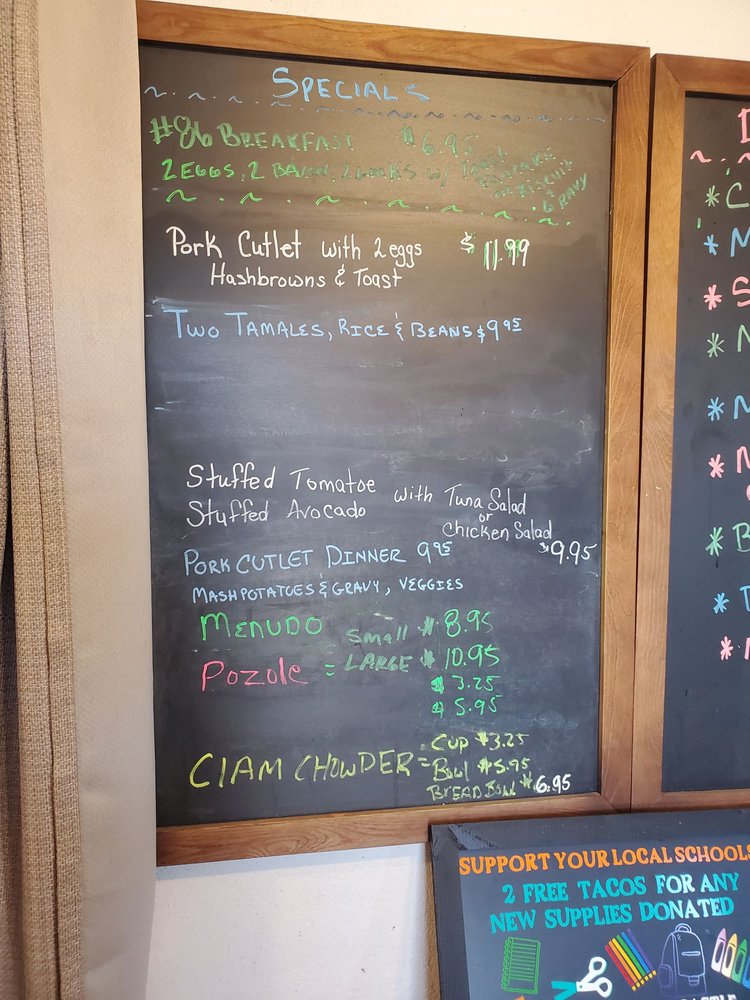 SPECIALS
#86 BREAKFAST $6.95
2 EGGS, 2 BACON, 2 LINKS W/ TOAST
PANCAKE
OR BISCUIT
& GRAVY
Pork Cutlet with 2 eggs $11.99
Hashbrowns & Toast
TWO TAMALES, RICE & BEANS $9.95
Stuffed Tomatoe
Stuffed Avocado with Tuna Salad
or
Chicken Salad
$9.95
PORK CUTLET DINNER 9.95
MASHPOTATOES & GRAVY, VEGGIES
MENUDO Small $8.95
POZOLE = LARGE $10.95
$3.25
$5.95
ClAM CHOWDER = CUP $3.25
Bowl $5.95
BREAD BOWL $6.95
* C
* M
* S
* N
* M
* M
* B
* T
SUPPORT YOUR LOCAL SCHOOLS
2 FREE TACOS FOR ANY
NEW SUPPLIES DONATED